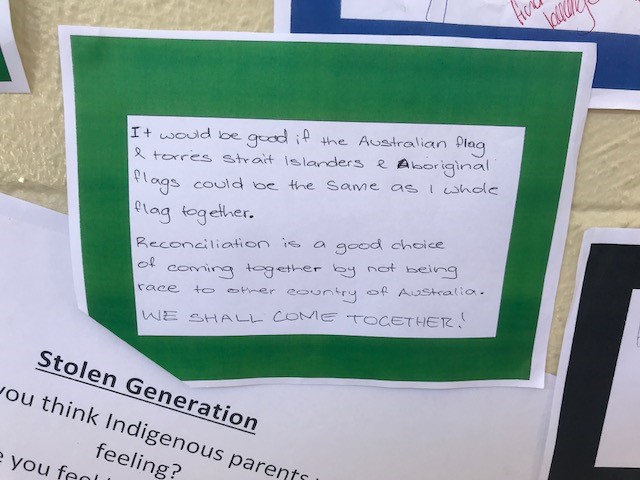 It would be good if the Australian flag
& torres strait Islanders & Aboriginal
flags could be the same as 1 whole
flag together.
Reconciliation is a good choice
of coming together by not being
race to other country of Australia.
WE SHALL COME TOGETHER!
Stolen Generation
you think Indigenous parents
feeling?
you feel